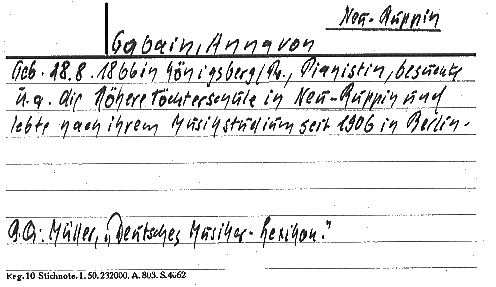 Neu-Ruppin
Gabain, Anna von
Geb. 18.8.1866 in Königsberg/Pr., Pianistin, besuchte
u.a. die Höhere Töchterschule in Neu-Ruppin und
lebte nach ihrem Musikstudium seit 1906 in Berlin.
Müller, „Deutsches Musiker-Lexikon."
Reg. 10 Stichnote. 1. 50. 232000. A. 803. S. 4662